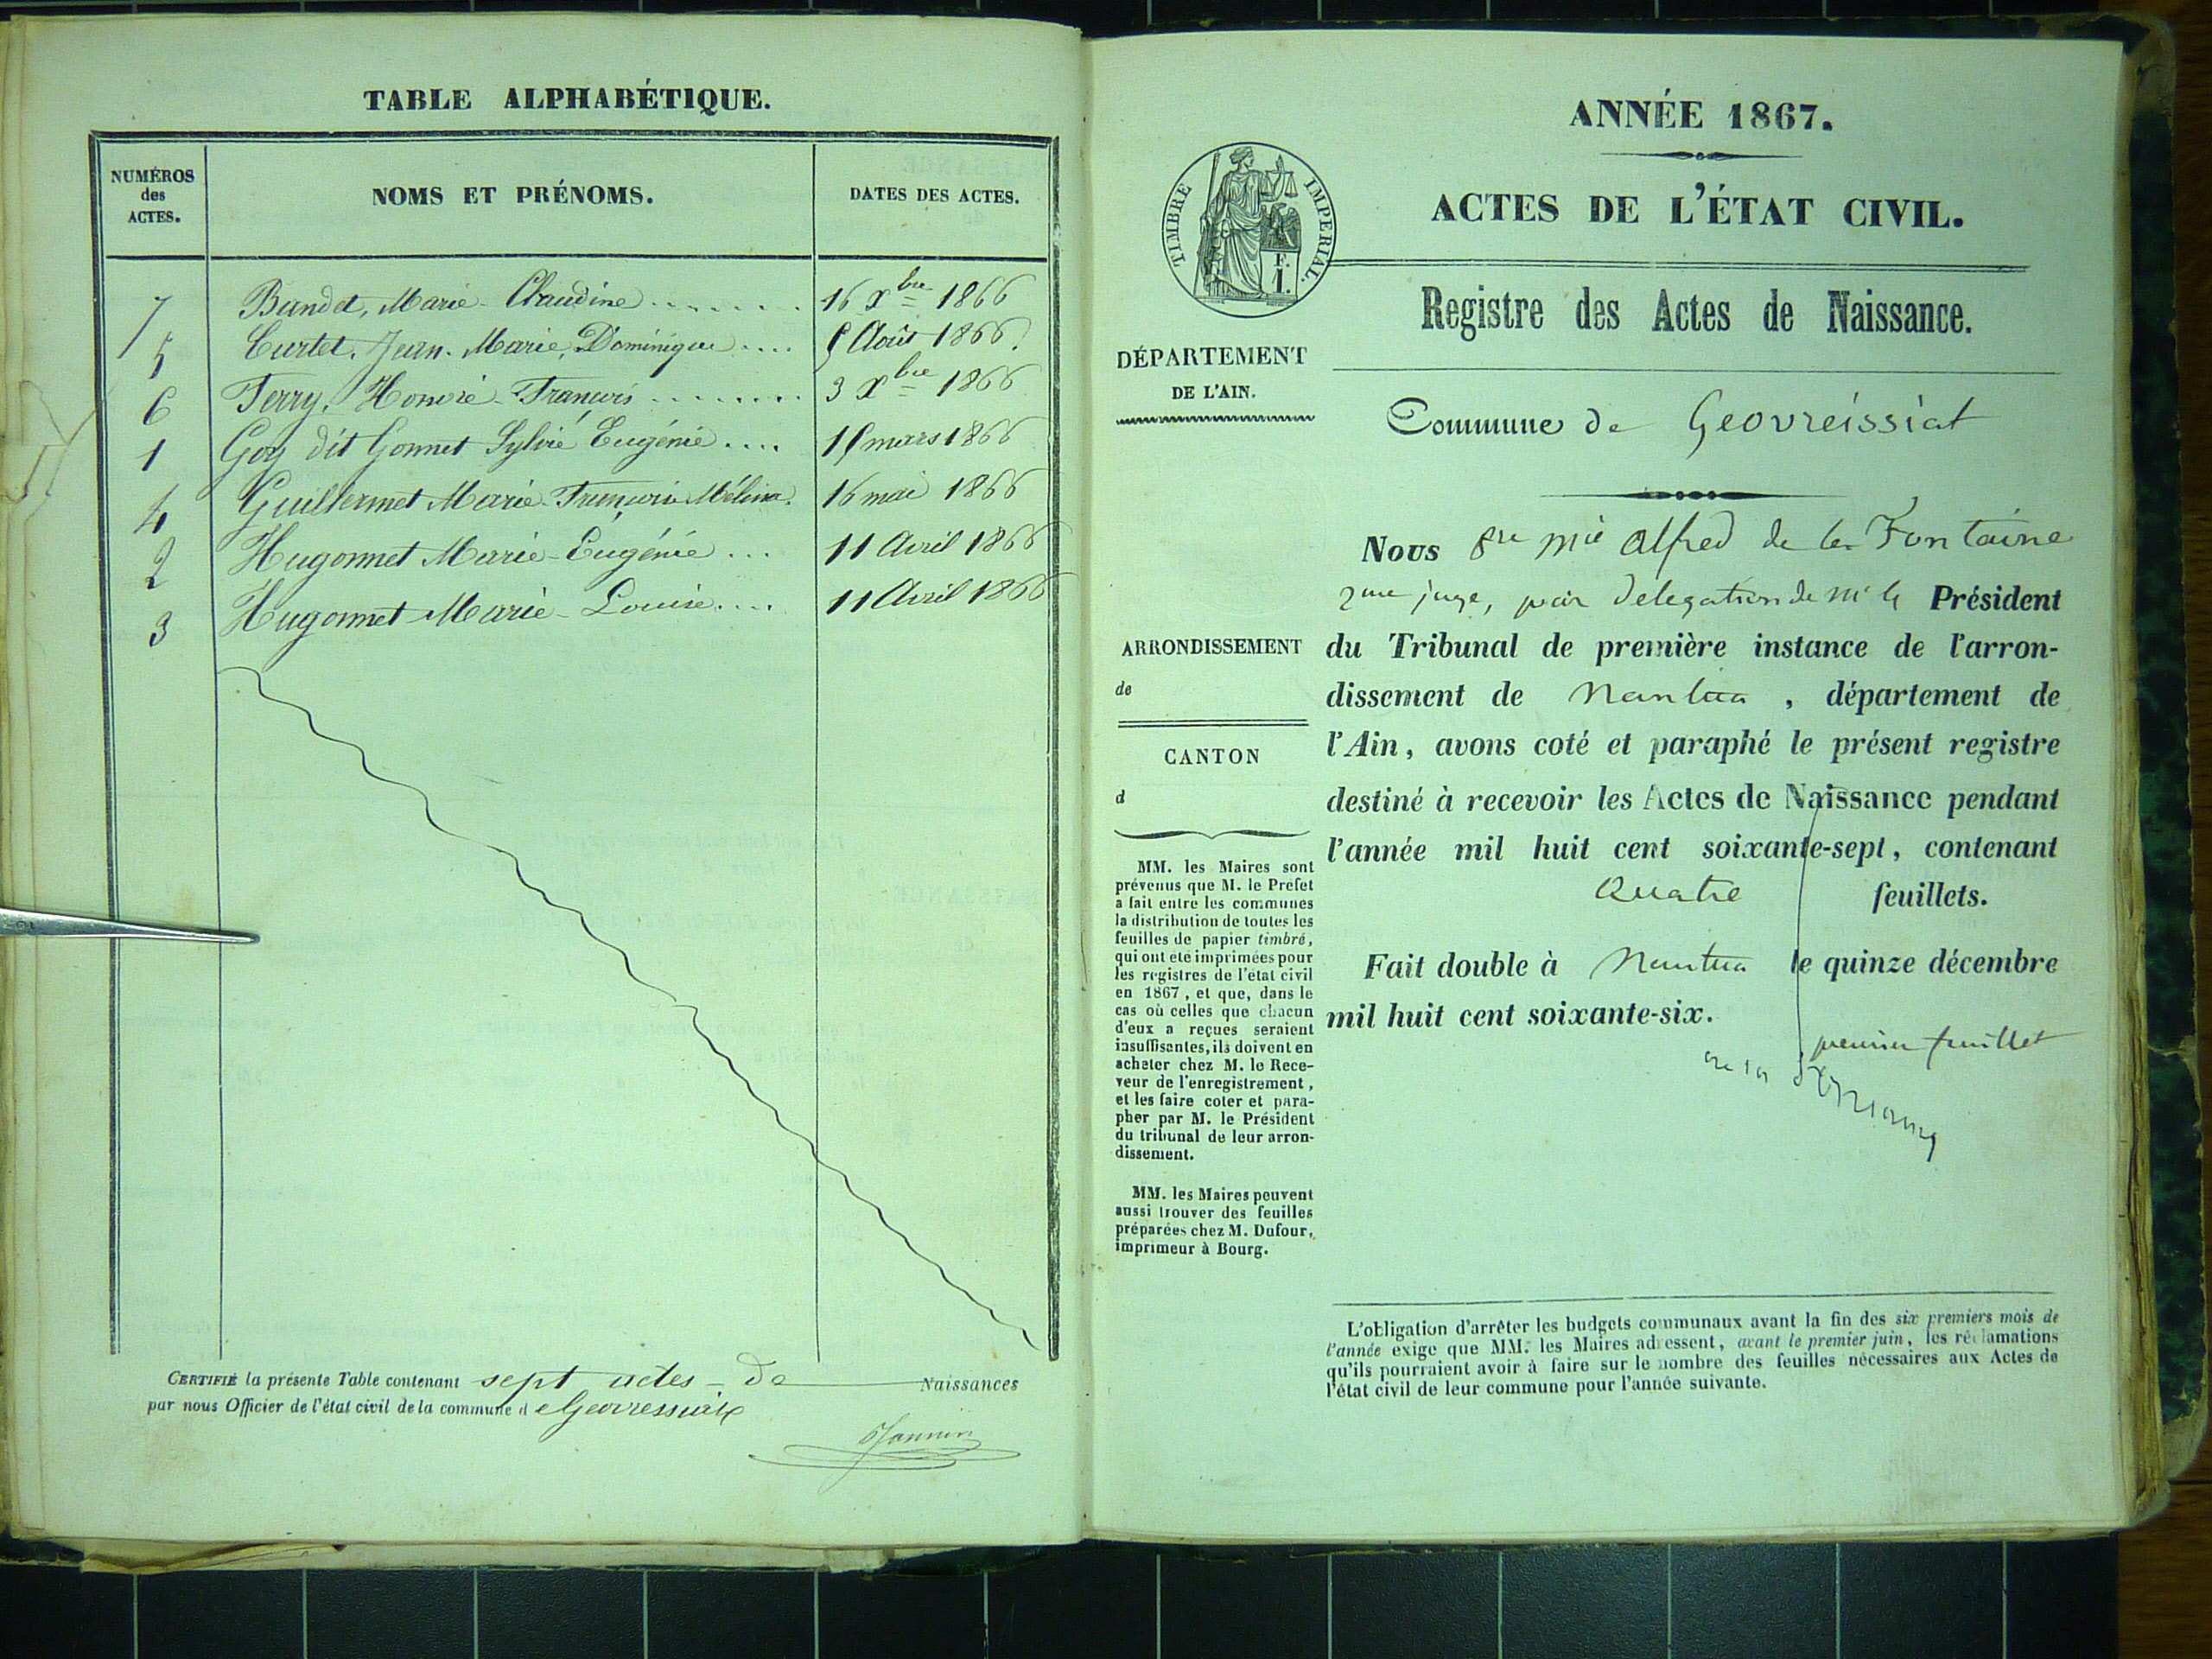 TABLE ALPHABÉTIQUE.
NUMÉROS des ACTES. NOMS ET PRÉNOMS. DATES DES ACTES.
7 Bandet, Marie-Claudine 16 Xbre 1866
5 Curtet, Jean-Marie, Dominique 5 Août 1866
6 Ferry, Honoré-François 3 Xbre 1866
1 Goy dit Gonnet Sylvie Eugénie 15 mars 1866
4 Guillermet Marie-Françoise Mélina 16 mai 1866
2 Hugonnet Marie-Eugénie 11 Avril 1866
3 Hugonnet Marie-Louise 11 Avril 1866
CERTIFIÉ la présente Table contenant sept actes de Naissances
par nous Officier de l'état civil de la commune d e Geovressiat
ANNÉE 1867.
ACTES DE L'ÉTAT CIVIL.
TIMBRE IMPERIAL.
F.
1.
Registre des Actes de Naissance.
DÉPARTEMENT
DE L'AIN.
Commune de Geovreissiat
ARRONDISSEMENT
de
CANTON
d
MM. les Maires sont
prévenus que M. le Préfet
a fait entre les communes
la distribution de toutes les
feuilles de papier timbré,
qui ont été imprimées pour
les registres de l'état civil
en 1867, et que, dans le
cas où celles que chacun
d'eux a reçues seraient
insuffisantes, ils doivent en
acheter chez M. le Rece-
veur de l'enregistrement,
et les faire coter et para-
pher par M. le Président
du tribunal de leur arron-
dissement.
MM. les Maires peuvent
aussi trouver des feuilles
préparées chez M. Dufour,
imprimeur à Bourg.
Nous Mie Alfred de la Fontaine
juge, par délégation de Mr le Président
du Tribunal de première instance de l'arron-
dissement de Nantua, département de
l'Ain, avons coté et paraphé le présent registre
destiné à recevoir les Actes de Naissance pendant
l'année mil huit cent soixante-sept, contenant
Quatre feuillets.
Fait double à Nantua le quinze décembre
mil huit cent soixante-six.
premier feuillet
L'obligation d'arrêter les budgets communaux avant la fin des six premiers mois de
l'année exige que MM. les Maires adressent, avant le premier juin, les réclamations
qu'ils pourraient avoir à faire sur le nombre des feuilles nécessaires aux Actes de
l'état civil de leur commune pour l'année suivante.